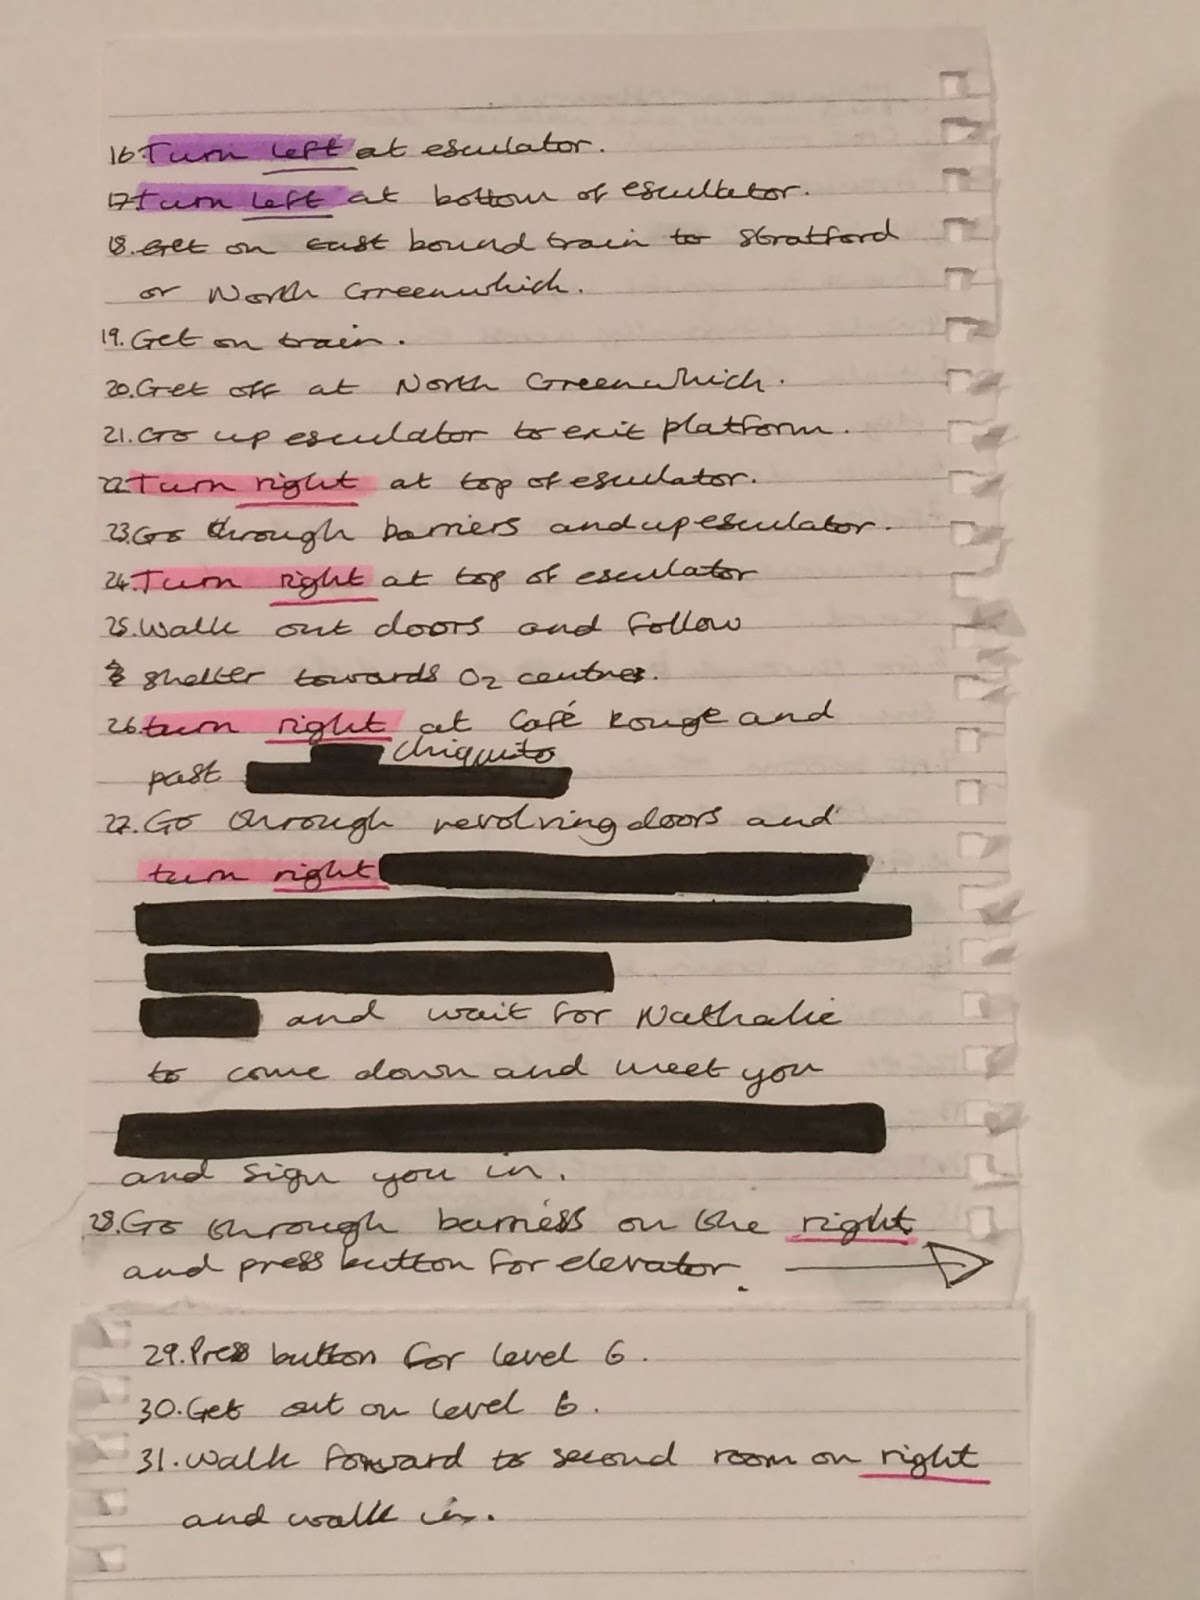 16. Turn left at esculator.
17. Turn left at bottom of escullator.
18. Get on east bound train to Stratford
or North Greenwhich.
19. Get on train.
20. Get off at North Greenwhich.
21. Go up esculator to exit platform.
22. Turn right at top of esculator.
23. Go through barriers and up esculator.
24. Turn right at top of esculator
25. Walk out doors and follow
shelter towards O2 centre.
26. turn right at Café Rouge and
chiquito
past
27. Go through revolving doors and
turn right
and wait for Nathalie
to come down and meet you
and sign you in.
28. Go through barriers on the right
and press button for elevator.
29. Press button for level 6.
30. Get out on level 6.
31. Walk forward to second room on right
and walk in.